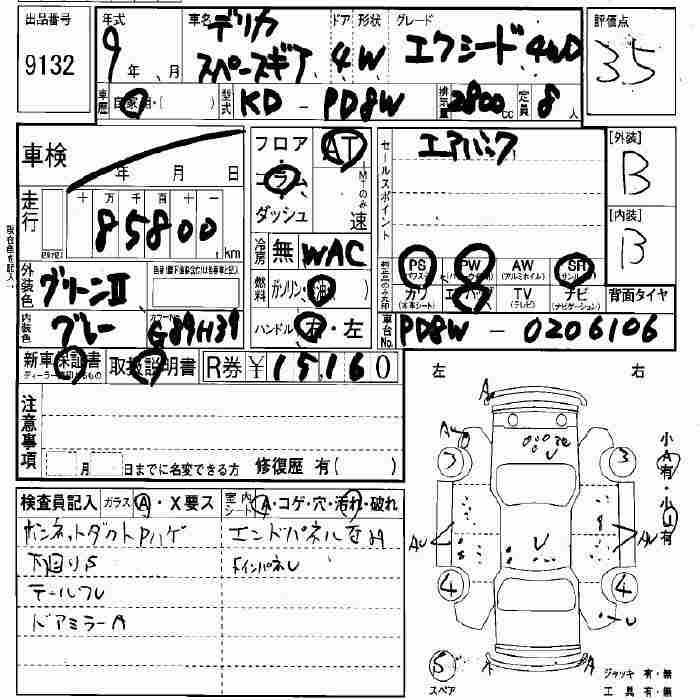 出品番号
9132
年式
9年 月
車名
デリカ
スペースギア
ドア 形状
4 W
グレード
エクシード 4WD
評価点
35
車歴
自家用・( )
型式
KD - PD8W
排気量
2800cc
定員
8人
車検
年 月 日
走行
十 万 千 百 十 一
85800km
フロア・
コラム・
ダッシュ
AT
速
冷房
無 WAC
燃料
ガソリン・軽油
ハンドル 右・左
セールスポイント
エアバック
[外装]
B
[内装]
B
PS PW AW SR
(パワステ) (アルミホイル)
カワ エアバッグ TV ナビ 背面タイヤ
(本革シート) (テレビ) (ナビゲーション)
外装色
グリーンII
内装色
グレー
カラーNo.
G89H39
車台No.
PD8W - 0206106
新車保証書
取扱説明書
R券 ¥15,160
注意事項
月 日までに名変できる方 修復歴 有( )
検査員記入
ガラス A・X要ス
室内シート A・コゲ・穴・汚れ・破れ
ボンネットダクトPハゲ
下回りS
テールフU
ドアミラーA
エンドパネル歪み
FインパネU
左 右
A
AU
3 3
小A有・小U有
U
AU AU
U
4 4
U
5
スペア
A A
ジャッキ 有・無
工具 有・無